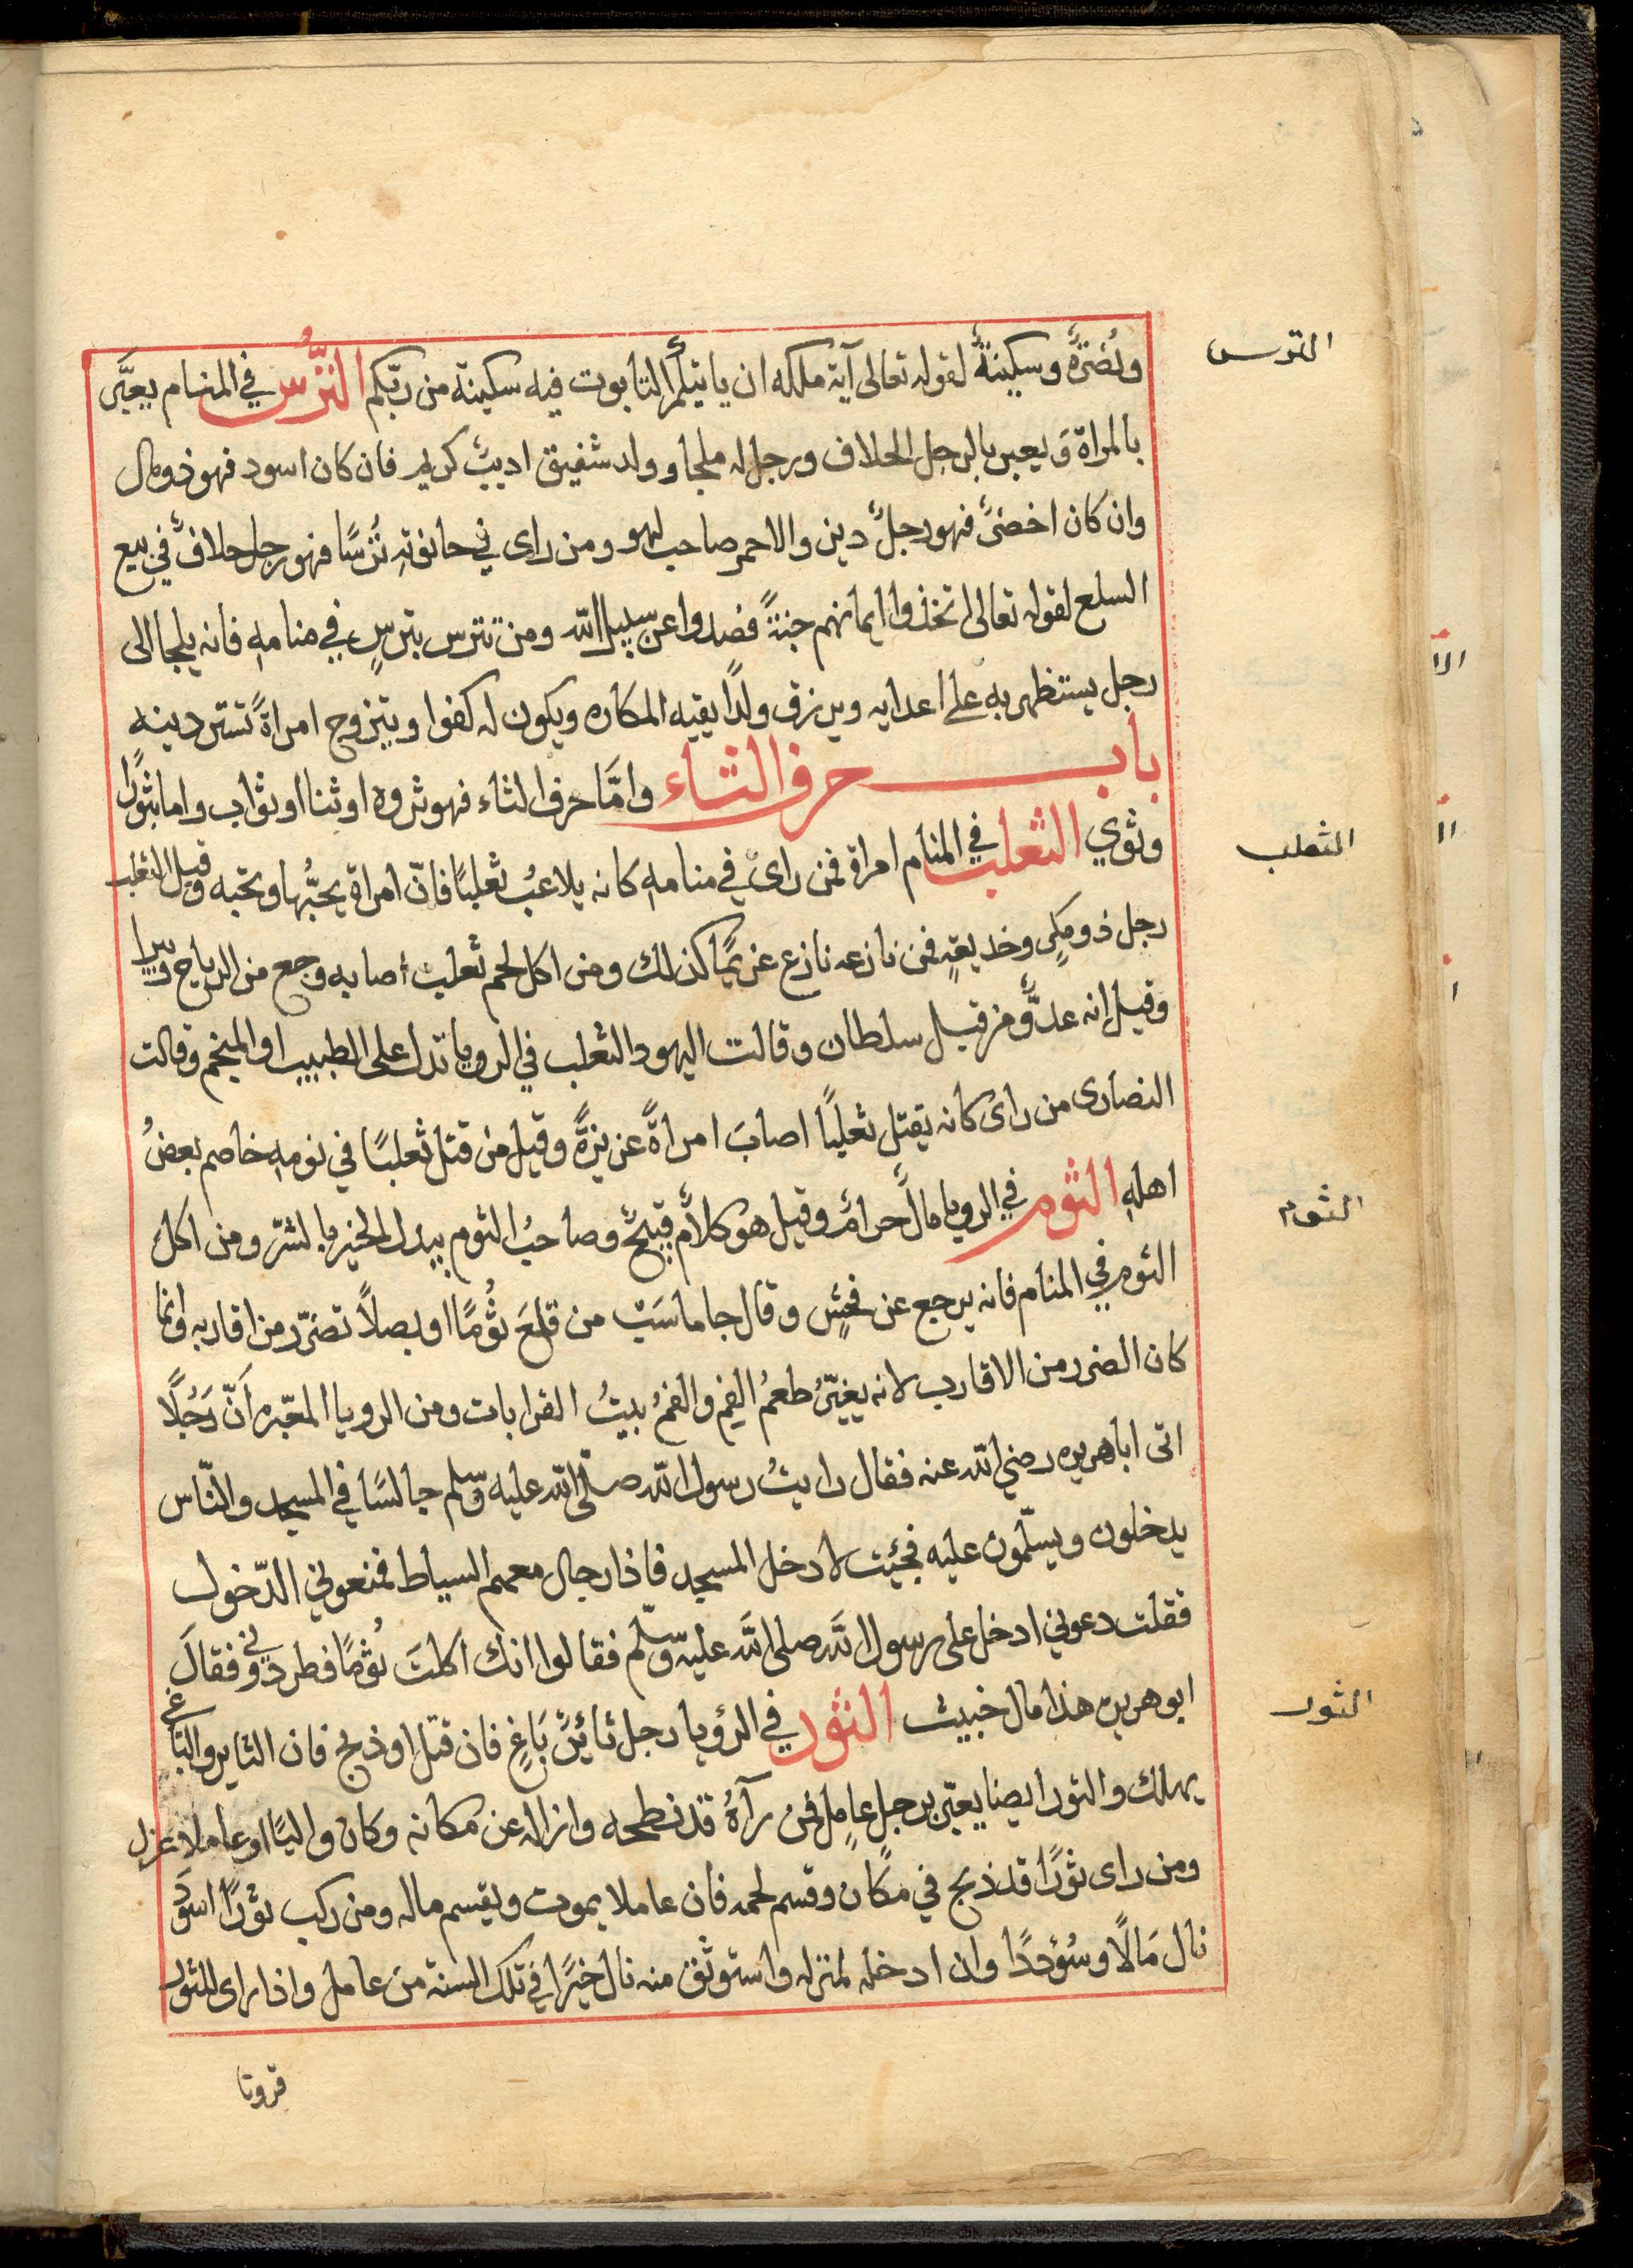 ونُصْرَةٌ وسكينةٌ لقوله تعالى آية ملكه ان ياتيكُم التابوت فيه سكينة من ربّكم التُّرْس في المنام يعبَّر
الترس
بالمراة وَيعبر بالرجل الحلاف ورجل له ملجا وولد شفيق اديبٌ كريم فان كان اسود فهو ذو مال
وان كان اخضرً فهو رجلٌ دين والاحمر صاحب لهو ومن راى في حانوته تُرْسًا فهو رجل حلافٌ في بيع
السلع لقوله تعالى اتخذوا ايمانهم جنةً فصدوا عن سبيل الله ومن تترس بترسٍ في منامه فانه يلجا الى
رجل يستظهر به على اعدايه ويرزق ولدًا يقيه المكاره ويكون له كفوا ويتزوج امراةً تستر دينه
باب حرف الثاء وامَّا حرف الثاء فهو ثروة او ثنا او ثواب واما بثورًا
وثوي الثعلب في المنام امراة فمن راى في منامه كانه يلاعبُ ثعلبًا فانّ امراة يحبُّها وتحبه وقيل الثعلب
الثعلب
رجل ذو مكرٍ وخديعةٍ فمن نازعه نازع غريمًا كذلك ومن اكل لحم ثعلب أصابه وجع من الرياح ويبرا
وقيل انه عدوٌّ من قبل سلطان وقالت اليهود الثعلب في الرويا تدل على الطبيب او المنجم وقالت
النصارى من راى كانه يقتل ثعلبًا اصابَ امراةً عزيزةً وقيل من قتل ثعلبًا في نومه خاصم بعضُ
اهله الثوم في الرويا مالٌ حرامٌ وقيل هو كلامٌ قبيحٌ وصاحبُ الثوم يبدل الخير بالشرّ ومن اكل
الثوم
الثوم في المنام فانه يرجع عن فحشٍ وقال جاماسَب من قلعَ ثُومًا او بصلاً تضرّر من اقاربه وانما
كان الضرر من الاقارب لانه يغيّرُ طعمُ الفم والفمُ بيتُ القرابات ومن الرويا المعبّره اَنّ رَجُلًا
اتى اباهريره رضي الله عنه فقال رايتُ رسول الله صلّى الله عليه وسّلم جالسًا في المسجد والنّاس
يدخلون ويسلّمون عليه فجئيت لادخل المسجد فاذا رجال معهم السياط فمنعوني الدّخول
فقلت دعوني ادخل على رسول الله صلى الله عليه وسّلم فقالوا انك اكلتَ ثُومًا فطردوني فقالَ
ابوهريره هذا مال خبيث الثور في الرؤيا رجل ثائِرٌ بَاغٍ فان قتل او ذبح فان الثاير والباغي
الثور
يهلك والثور ايضا يعبّر برجل عاملٍ فمن رآهُ قد نطحه وازاله عن مكانه وكان واليًا او عاملا عزل
ومن راى ثورًا قد ذبح في مكان وقسم لحمه فان عاملا يموت ويقسم ماله ومن ركب ثورًا اسوَد
نال مَالًا وسُؤددًا وان ادخله لمنزله واستوثق منه نال خيرًا في تلك السنة من عامل واذا راى للثور
قرونا